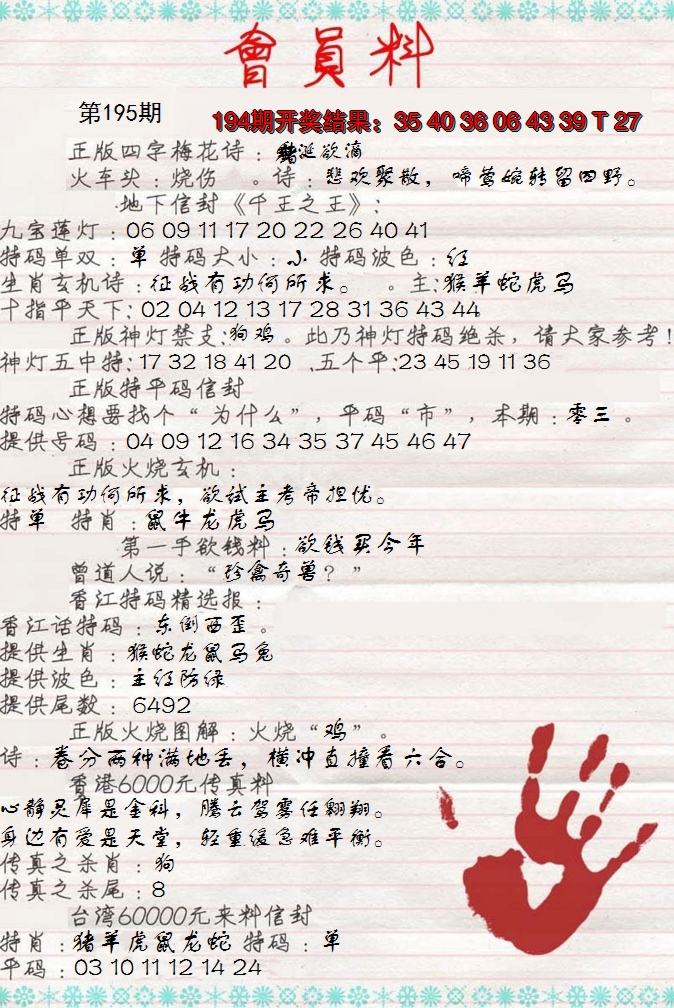 會員料
第195期
194期开奖结果：35 40 36 06 43 39 T 27
正版四字梅花诗：延欲滴
火车头：烧伤 。诗：悲欢聚散，啼莺婉转留四野。
地下信封《千王之王》：
九宝莲灯：06 09 11 17 20 22 26 40 41
特码单双：单 特码大小：小 特码波色：红
生肖玄机诗：征战有功何所求。 。主：猴羊蛇虎马
十指平天下：02 04 12 13 17 28 31 36 43 44
正版神灯禁支：狗鸡。此乃神灯特码绝杀，请大家参考！
神灯五中特：17 32 18 41 20 、五个平：23 45 19 11 36
正版特平码信封
特码心想要找个“为什么”，平码“市”，本期：零三。
提供号码：04 09 12 16 34 35 37 45 46 47
正版火烧玄机：
征战有功何所求，欲试主考帝担忧。
特单 特肖：鼠牛龙虎马
第一手欲钱料：欲钱买今年
曾道人说：“珍禽奇兽？”
香江特码精选报：
香江话特码：东倒西歪。
提供生肖：猴蛇龙鼠马兔
提供波色：主红防绿
提供尾数：6492
正版火烧图解：火烧“鸡”。
诗：卷分两种满地丢，横冲直撞看六合。
香港6000元传真料
心静灵犀是金科，腾云驾雾任翱翔。
身边有爱是天堂，轻重缓急难平衡。
传真之杀肖：狗
传真之杀尾：8
台湾60000元来料信封
特肖：猪羊虎鼠龙蛇 特码：单
平码：03 10 11 12 14 24